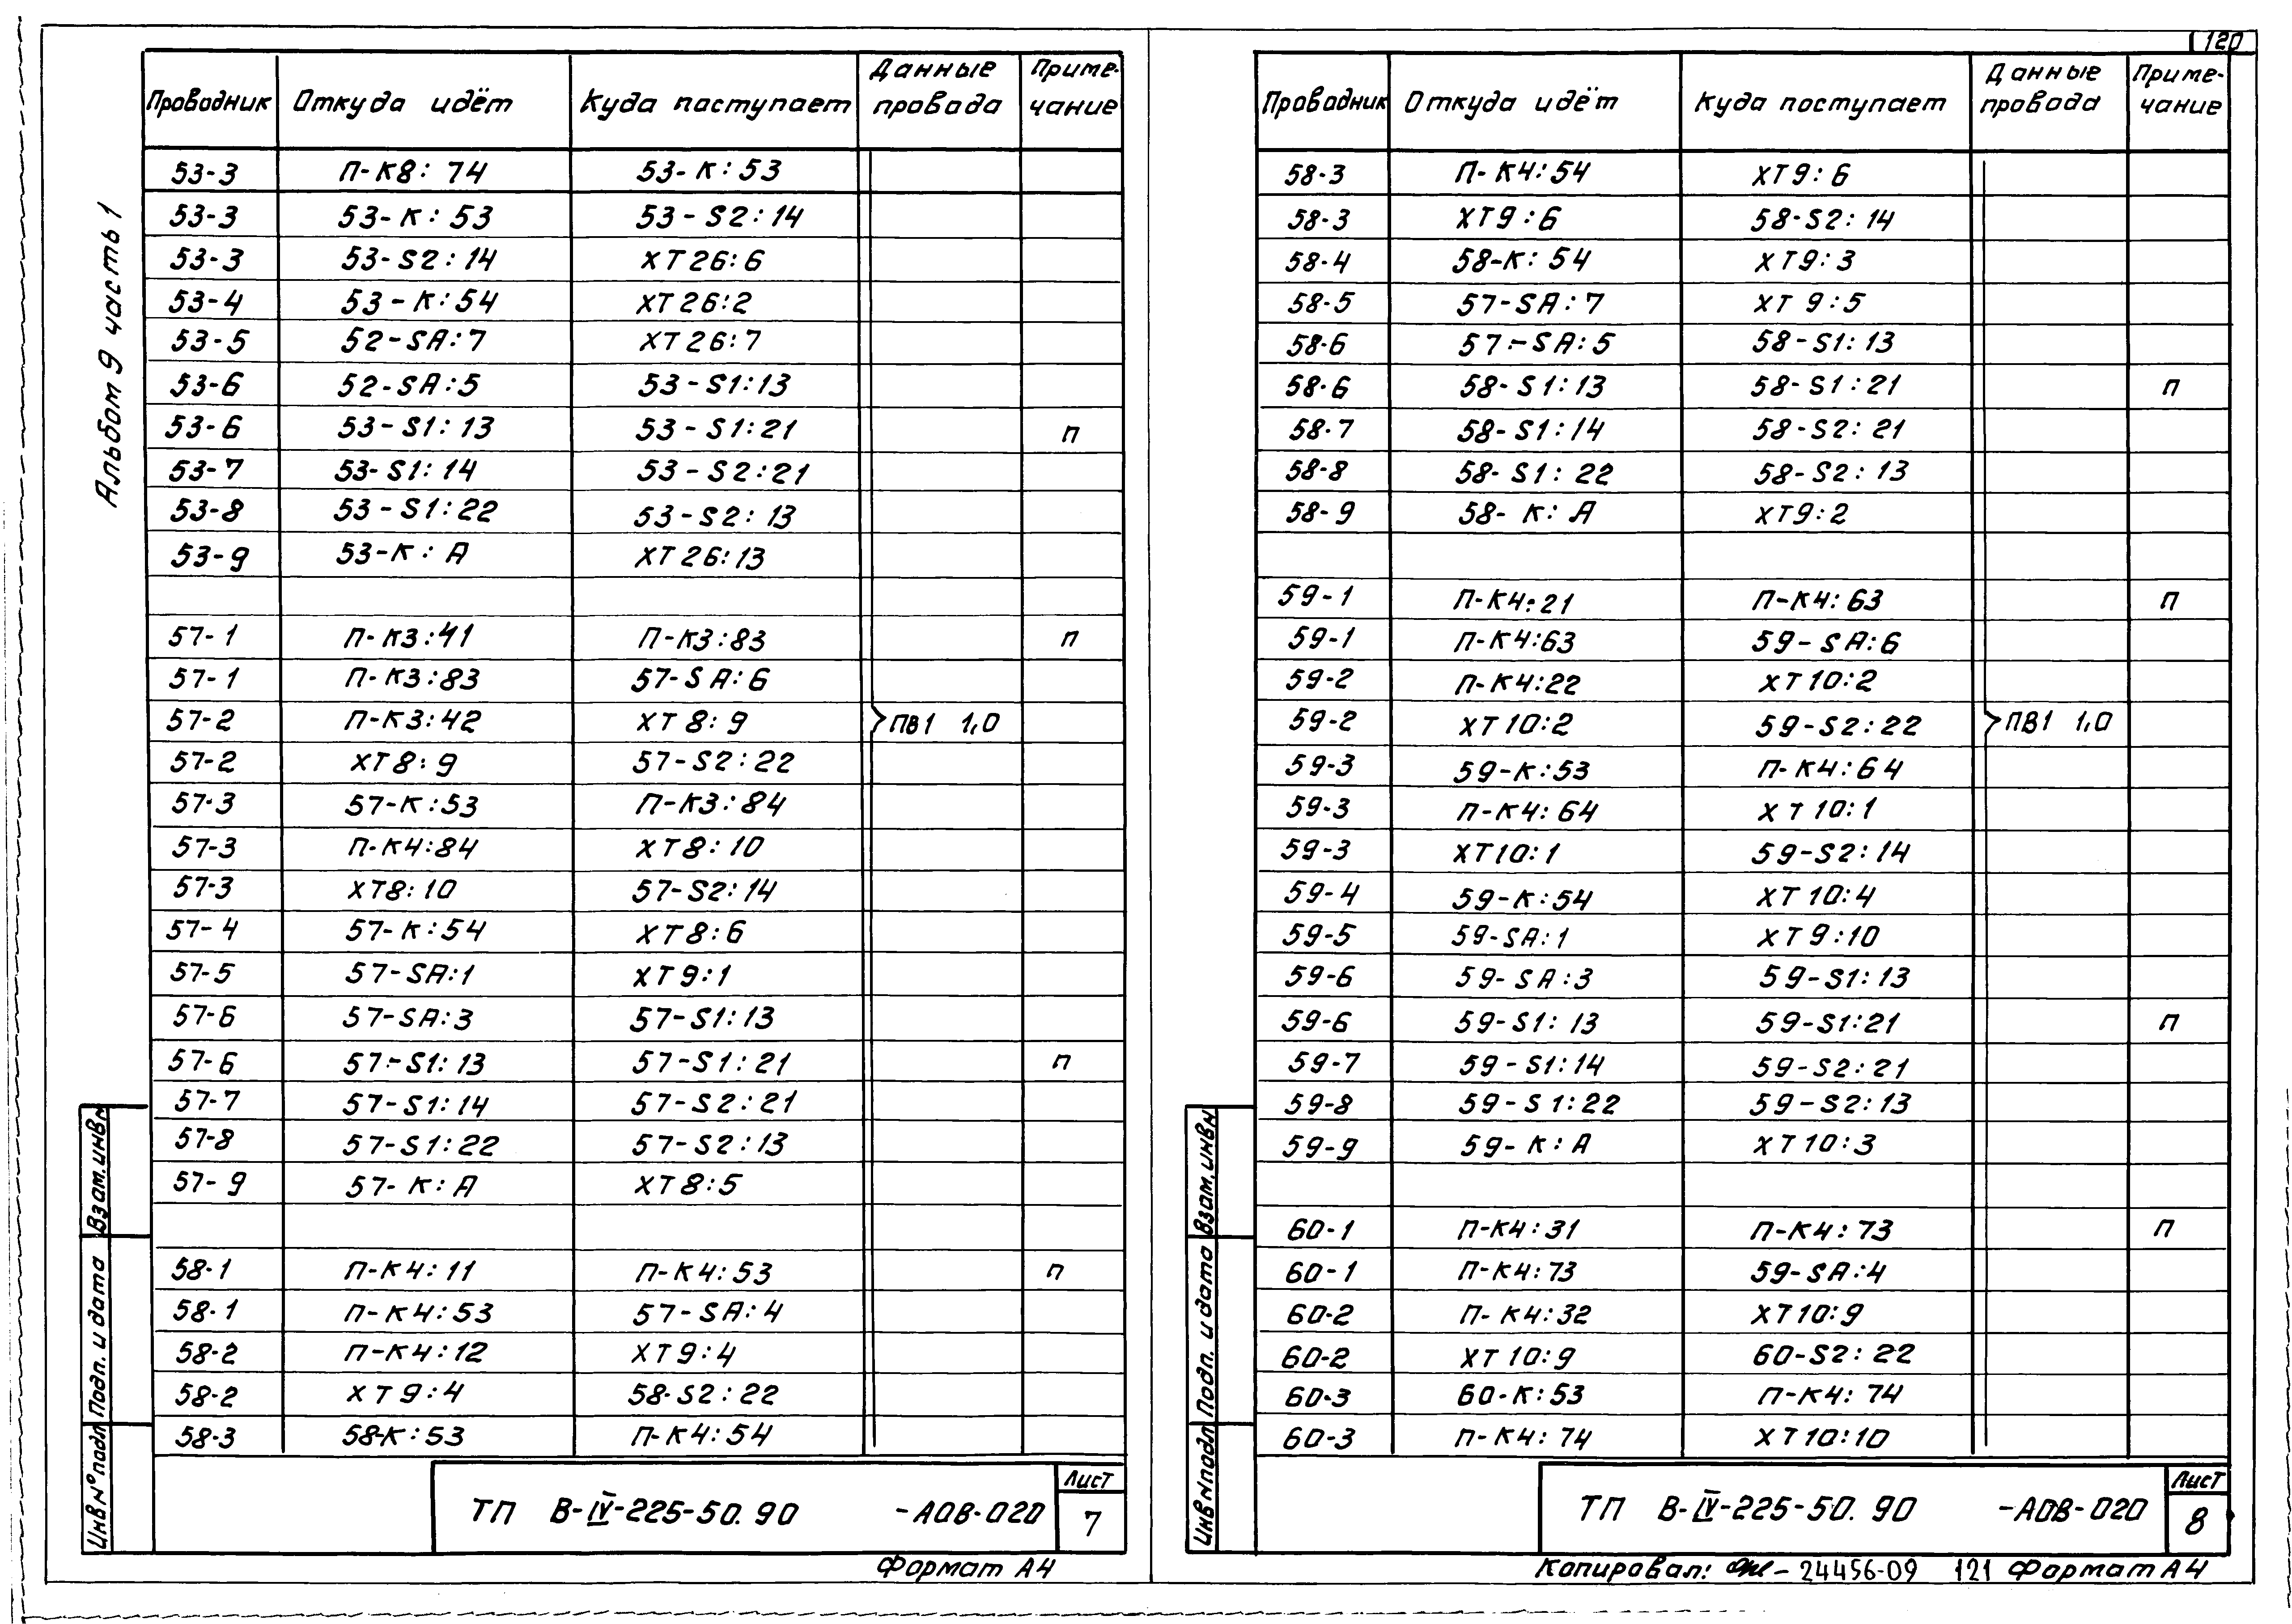 120
Альбом 9 часть 1
Проводник Откуда идёт Куда поступает Данные провода Приме-чание
53-3 П-К8:74 53-К:53
53-3 53-К:53 53-S2:14
53-3 53-S2:14 ХТ26:6
53-4 53-К:54 ХТ26:2
53-5 52-SA:7 ХТ26:7
53-6 52-SA:5 53-S1:13
53-6 53-S1:13 53-S1:21 п
53-7 53-S1:14 53-S2:21
53-8 53-S1:22 53-S2:13
53-9 53-К:А ХТ26:13
57-1 П-К3:41 П-К3:83 п
57-1 П-К3:83 57-SA:6
57-2 П-К3:42 ХТ8:9 ПВ1 1,0
57-2 ХТ8:9 57-S2:22
57-3 57-К:53 П-К3:84
57-3 П-К4:84 ХТ8:10
57-3 ХТ8:10 57-S2:14
57-4 57-К:54 ХТ8:6
57-5 57-SA:1 ХТ9:1
57-6 57-SA:3 57-S1:13
57-6 57-S1:13 57-S1:21 п
57-7 57-S1:14 57-S2:21
57-8 57-S1:22 57-S2:13
57-9 57-К:А ХТ8:5
58-1 П-К4:11 П-К4:53 п
58-1 П-К4:53 57-SA:4
58-2 П-К4:12 ХТ9:4
58-2 ХТ9:4 58-S2:22
58-3 58-К:53 П-К4:54
Инв № подл Подп. и дата Взам. инв №
ТП В-IV-225-50.90 -АОВ-020
Лист
7
Формат А4
Проводник Откуда идёт Куда поступает Данные провода Приме-чание
58-3 П-К4:54 ХТ9:6
58-3 ХТ9:6 58-S2:14
58-4 58-К:54 ХТ9:3
58-5 57-SA:7 ХТ9:5
58-6 57-SA:5 58-S1:13
58-6 58-S1:13 58-S1:21 п
58-7 58-S1:14 58-S2:21
58-8 58-S1:22 58-S2:13
58-9 58-К:А ХТ9:2
59-1 П-К4:21 П-К4:63 п
59-1 П-К4:63 59-SA:6
59-2 П-К4:22 ХТ10:2
59-2 ХТ10:2 59-S2:22 ПВ1 1,0
59-3 59-К:53 П-К4:64
59-3 П-К4:64 ХТ10:1
59-3 ХТ10:1 59-S2:14
59-4 59-К:54 ХТ10:4
59-5 59-SA:1 ХТ9:10
59-6 59-SA:3 59-S1:13
59-6 59-S1:13 59-S1:21 п
59-7 59-S1:14 59-S2:21
59-8 59-S1:22 59-S2:13
59-9 59-К:А ХТ10:3
60-1 П-К4:31 П-К4:73 п
60-1 П-К4:73 59-SA:4
60-2 П-К4:32 ХТ10:9
60-2 ХТ10:9 60-S2:22
60-3 60-К:53 П-К4:74
60-3 П-К4:74 ХТ10:10
Инв № подл Подп. и дата Взам. инв №
ТП В-IV-225-50.90 -АОВ-020
Лист
8
Копировал: - 24456-09 121 Формат А4